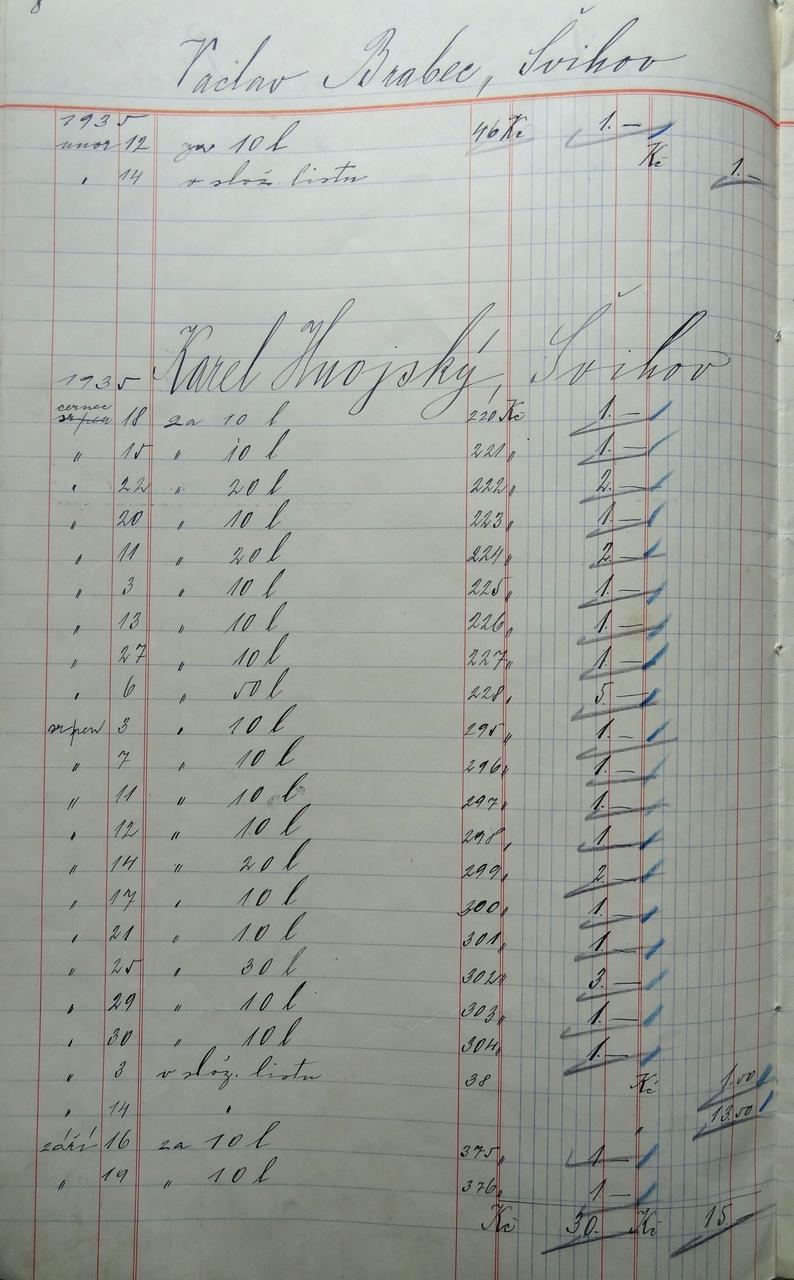 8
Václav Brabec, Švihov
1935
únor 12 za 10 l 46 Kč 1.—
" 14 v slož. listu Kč 1.—
Karel Hnojský, Švihov
1935
červnec srpen 18 za 10 l 220 Kč 1.—
" 15 " 10 l 221 " 1.—
" 22 " 20 l 222 " 2.—
" 20 " 10 l 223 " 1.—
" 11 " 20 l 224 " 2.—
" 3 " 10 l 225 " 1.—
" 13 " 10 l 226 " 1.—
" 27 " 10 l 227 " 1.—
" 6 " 50 l 228 " 5.—
srpen 3 " 10 l 295 " 1.—
" 7 " 10 l 296 " 1.—
" 11 " 10 l 297 " 1.—
" 12 " 10 l 298 " 1.—
" 14 " 20 l 299 " 2.—
" 17 " 10 l 300 " 1.—
" 21 " 10 l 301 " 1.—
" 25 " 30 l 302 " 3.—
" 29 " 10 l 303 " 1.—
" 30 " 10 l 304 " 1.—
" 3 v slož. listu 38 Kč 1.00
" 14 " " 13.50
září 16 za 10 l 375 " 1.—
" 19 " 10 l 376 " 1.—
Kč 30.— Kč 15